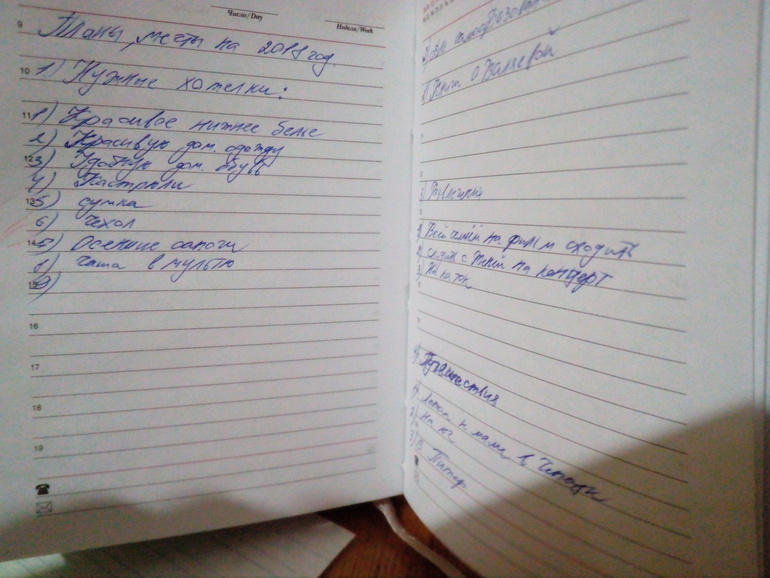 Число/Day
Неделя/Week
9
Планы, мечты на 2018 год.
10
1) Нужные хотелки:
11
1) Красивое нижнее белье
2) Красивую дом. одежду
12
3) Удобную дом. обувь
4) Кастрюли
13
5) сумка
6) Чехол
14
Осенние сапоги
8) чаша в мульти
15
9)
16
17
18
19
2)
1) Книги о
3) Развлечения
1) Всей семьёй на фильм сходить
2) сходить с Женей на концерт
3) На каток
4) Путешествия
1) Летом к маме в
2) на юг
3) В Питер